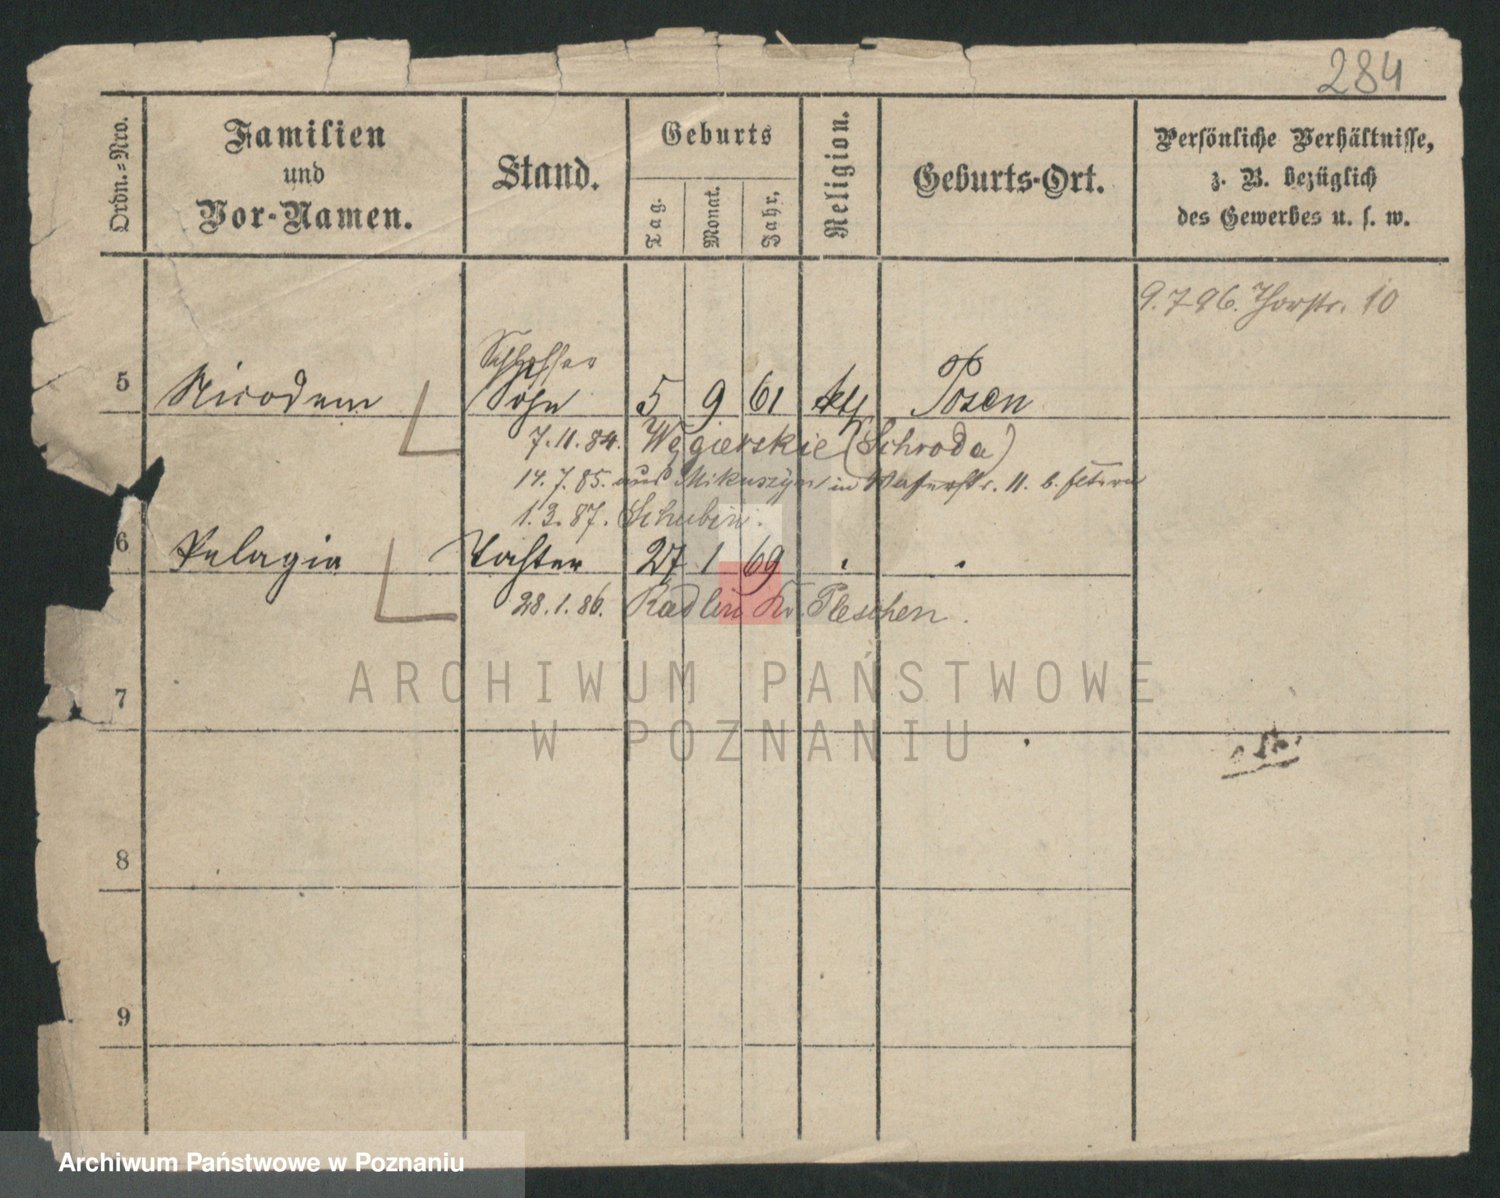 284
Ordn.-Nro.
Familien
und
Vor-Namen.
Stand.
Geburts
Tag.
Monat.
Jahr.
Religion.
Geburts-Ort.
Persönliche Verhältnisse,
z. B. bezüglich
des Gewerbes u. s. w.
9.7.96. Thorstr. 10
Schlosser
5 Nicodem Sohn 5 9 61 kth Posen
7.11.84. Węgierskie (Schroda)
14.7.85. aus Mikuszyn in Wasserstr. 11. b. Eltern
1.3.87. Schubin.
6 Pelagia Tochter 27 1 69
28.1.86. Radlin Kr. Pleschen.
7
8
9
ARCHIWUM PAŃSTWOWE
W POZNANIU
Archiwum Państwowe w Poznaniu